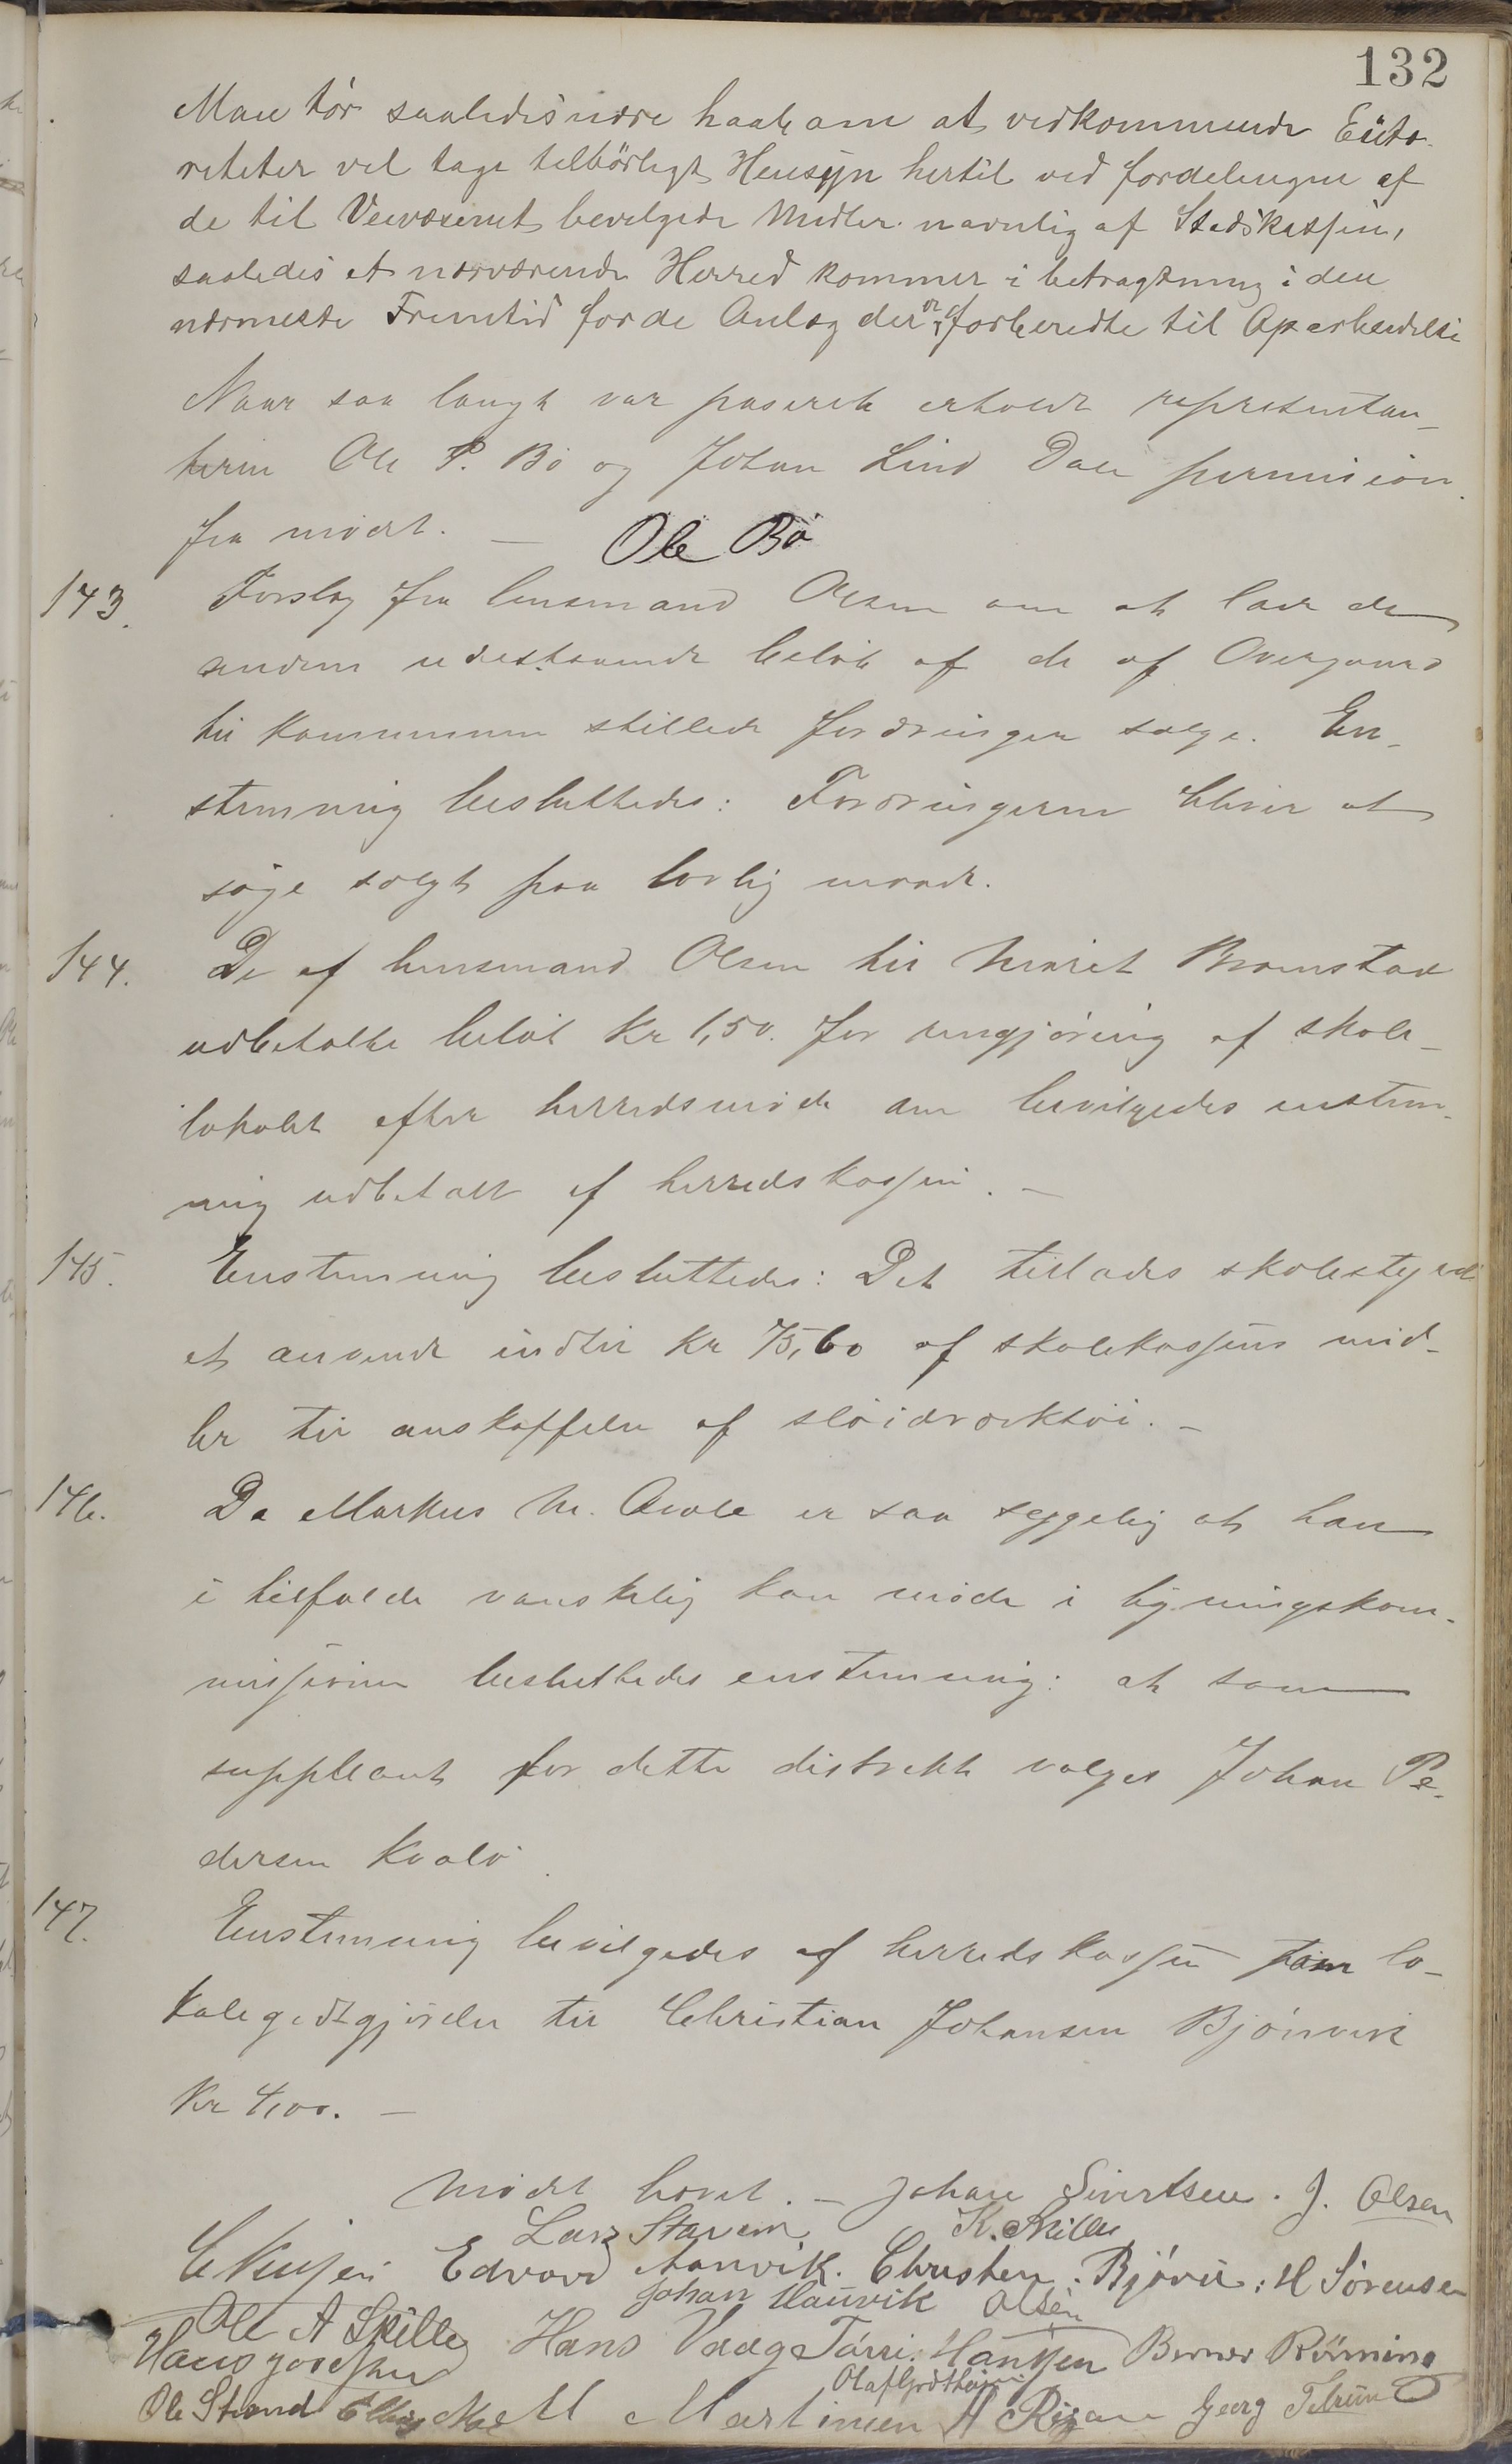 132
Man tör saaledes nære haab om at vedkommende Auto-
riteter vil tage tilbörligt Hensyn hertil ved fordelingen af
de til Veivæsenet bevilgede Midler navnlig af Stadskassen,
saaledes at nærværende Herred kommer i betragtning i den
nærmeste Fremtid for de Anlæg der er forberedte til Oparbeidelse
Naar saa langt var paseret erholdt representan-
terne Ole P. Bö og Johan Lind Dale permision
fra mödet. —
Ole Bö
143. Forslag fra lensmand Olsen om at lade de
endnu udestaaende belöb af de af Overgaard
til kommunen stillede fordringer sælge. En-
stemmig besluttedes: Fordringerne bliver at
söge solgt paa lovlig maade.
144. De af lensmand Olsen til Marit Bromstad
udbetalte belöb kr 1,50. for rengjöring af skole-
lokalet efter herredsmöde der bevilgedes enstem-
mig udbetalt af herredskassen. —
145. Enstemmig besluttedes: Det tillades skolestyret
at anvende indtil kr 75,60 af skolekassens mid-
ler til anskaffelse af slöidværktöi. —
146. Da Markus M. er saa syggelig at han
i tilfælde vanskelig kan möde i ligningskom-
missionen besluttedes enstemmig: at som
suppleant for dette distrikt vælges Johan Pe-
dersen Kvalö
147. Enstemmig bevilgedes af herredskassen som lo-
kalegodtgjörelse til Christian Johansen Björnvik
kr 4,00. —
Mödet hævet. — Johan Sivertsen. J. Olsen
Lars Stavem K. Skille
Edvard Aanvik. Christen. : H Sörensen
Johan Hauvik Olsen
Ole A Skille Hans Vaag Hansen Berner Rörming
Hans Josefsen
Ole Strand Elling M Martinsen A Georg